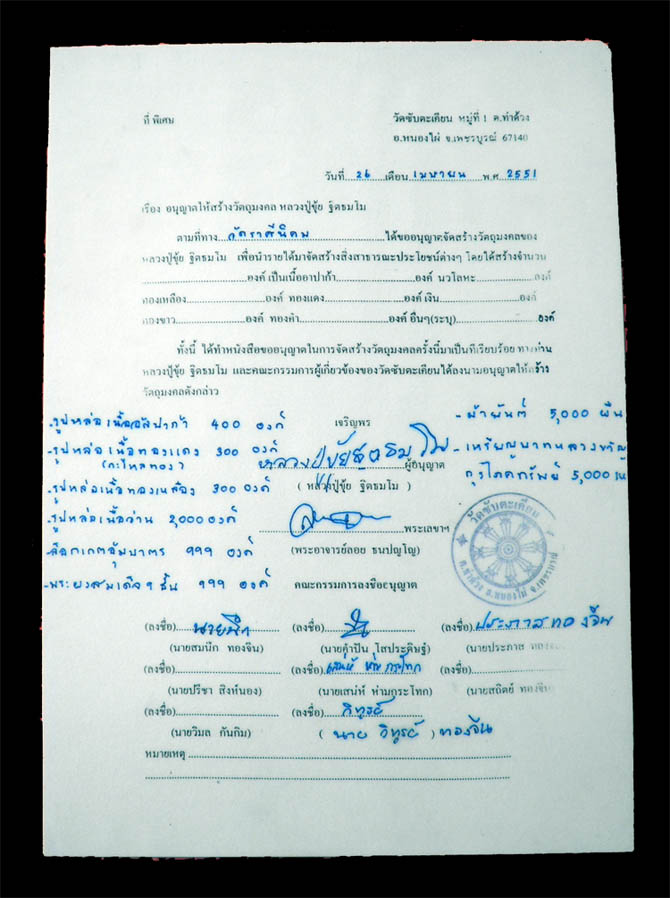 ที่ พิเศษ
วัดซับตะเคียน หมู่ที่ 1 ต.ท่าด้วง
อ.หนองไผ่ จ.เพชรบูรณ์ 67140
วันที่ 26 เดือน เมษายน พ.ศ. 2551
เรื่อง อนุญาตให้สร้างวัตถุมงคล หลวงปู่ขุ้ย ฐิตธมโม
ตามที่ทาง ภัคราศีนิคม ได้ขออนุญาตจัดสร้างวัตถุมงคลของ
หลวงปู่ขุ้ย ฐิตธมโม เพื่อนำรายได้มาจัดสร้างสิ่งสาธารณะประโยชน์ต่างๆ โดยได้สร้างจำนวน
องค์ เป็นเนื้ออาปาก้า องค์ นวโลหะ องค์
ทองเหลือง องค์ ทองแดง องค์ เงิน องค์
ทองขาว องค์ ทองคำ องค์ อื่นๆ(ระบุ) องค์
ทั้งนี้ ได้ทำหนังสือขออนุญาตในการจัดสร้างวัตถุมงคลครั้งนี้มาเป็นที่เรียบร้อย ทางท่าน
หลวงปู่ขุ้ย ฐิตธมโม และคณะกรรมการผู้เกี่ยวข้องของวัดซับตะเคียนได้ลงนามอนุญาตให้สร้าง
วัตถุมงคลดังกล่าว
เจริญพร
- รูปหล่อเนื้ออัลปาก้า 400 องค์
- รูปหล่อเนื้อทองแดง 300 องค์
(กะไหล่ทอง)
- รูปหล่อเนื้อทองเหลือง 300 องค์
- รูปหล่อเนื้อว่าน 2,000 องค์
- ล็อกเกตจัมบาตร 999 องค์
- พระผงสมเด็จ 9 ชั้น 999 องค์
- ผ้ายันต์ 5,000 ผืน
- เหรียญนาคหลวงขวัญ
ถุงโภคทรัพย์ 5,000
หลวงปู่ขุ้ยฐิตธมโม ผู้อนุญาต
( หลวงปู่ขุ้ย ฐิตธมโม )
พระเลขาฯ
(พระอาจารย์ลอย ธนปญโญ)
วัดซับตะเคียน
ต.ท่าด้วง อ.หนองไผ่ จ.เพชรบูรณ์
คณะกรรมการลงชื่ออนุญาต
(ลงชื่อ) นายนึก (ลงชื่อ) (ลงชื่อ) ประภาส ทองจีน
(นายสมนึก ทองจีน) (นายคำปัน โสประดิษฐ์) (นายประภาส
(ลงชื่อ) (ลงชื่อ) เสน่ห์ ห่ามกระโทก (ลงชื่อ)
(นายปรีชา สิงห์นอง) (นายเสน่ห์ ห่ามกระโทก) (นายสถิตย์ ทองจีน
(ลงชื่อ) (ลงชื่อ) วิฑูรย์
(นายวิมล กันกิม) ( นาย วิฑูรย์ ) ทองจีน
หมายเหตุ